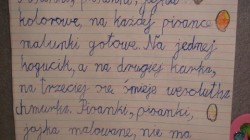 pisanki, jajka
kolorowe, na każdej pisance
malunki gotowe. Na jednej
kogucik, a na drugiej kurka,
na trzeciej się śmieje wesolutka
chmurka. Pisanki, pisanki,
jajka malowane, nie ma